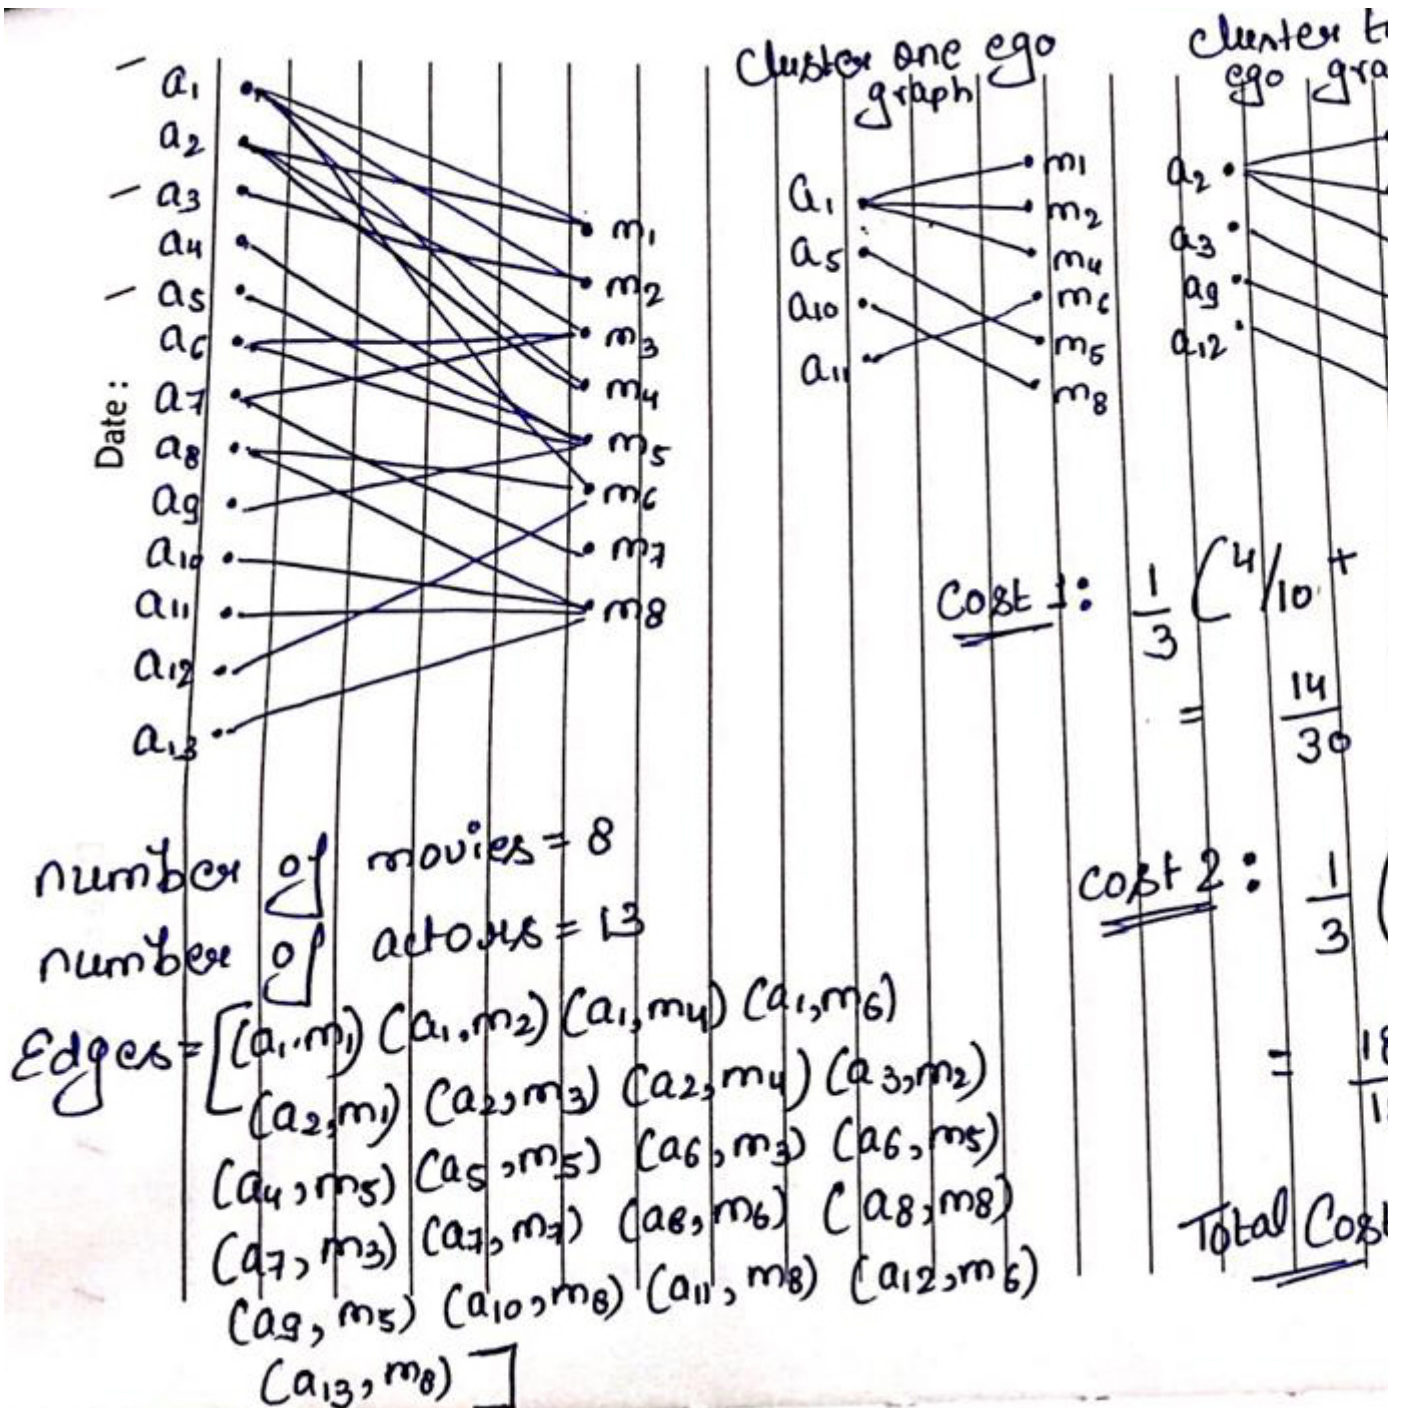 a1
a2
a3
a4
a5
a6
a7
a8
a9
a10
a11
a12
a13
Date:
m1
m2
m3
m4
m5
m6
m7
m8
Cluster one ego
graph
a1
a5
a10
a11
m1
m2
m4
m6
m5
m8
cluster
ego
a2
a3
a9
a12
Cost 1: 1/3 (4/10 +
= 14/30
Cost 2: 1/3 (
=
Total Cost
number of movies = 8
number of actors = 13
Edges = [(a1,m1) (a1,m2) (a1,m4) (a1,m6)
(a2,m1) (a2,m3) (a2,m4) (a3,m2)
(a4,m5) (a5,m5) (a6,m3) (a6,m5)
(a7,m3) (a7,m7) (a8,m6) (a8,m8)
(a9,m5) (a10,m8) (a11,m8) (a12,m6)
(a13,m8)]